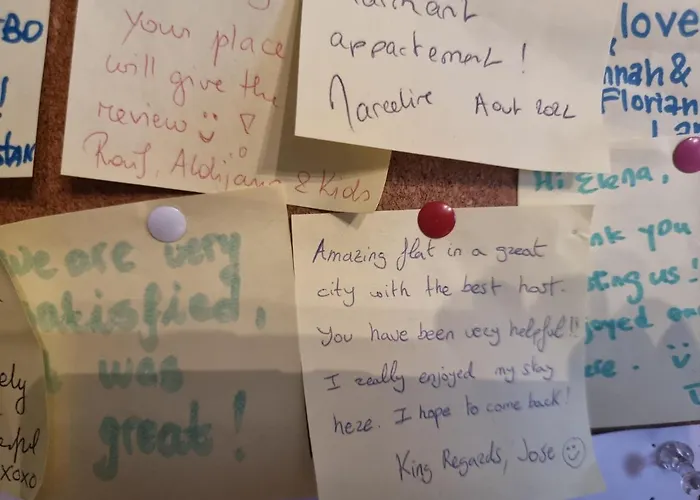 BO
!
STAN
your place
will give the
review
Rauf, Aldijana & Kids
appartement !
Marceline Aout 2022
love
nnah &
Florian
Hi Elena,
nk you
ting us !
joyed our
ere.
we are very
atisfied,
was
great!
ely
xoxo
Amazing flat in a great
city with the best host.
You have been very helpful!!
I really enjoyed my stay
heze. I hope to come back!
King Regards, Jose